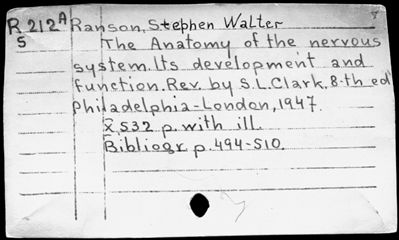 R 212A Ranson, Stephen Walter
5 The Anatomy of the nervous
system. Its development and
function. Rev. by S.L. Clark. 8-th ed
Philadelphia-London, 1947.
X, 532 p. with ill.
Bibliogr p. 494-510.